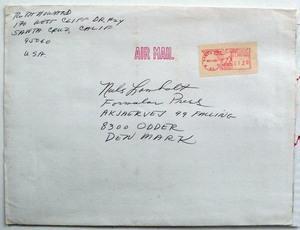 RUTH HOWARD
170 WEST CLIFF DR. #24
SANTA CRUZ, CALIF
95060
U.S.A.
AIR MAIL
Niels Lomholt
Formular Press
AKJAERVEJ 99 FALLING
8300 ODDER
DENMARK